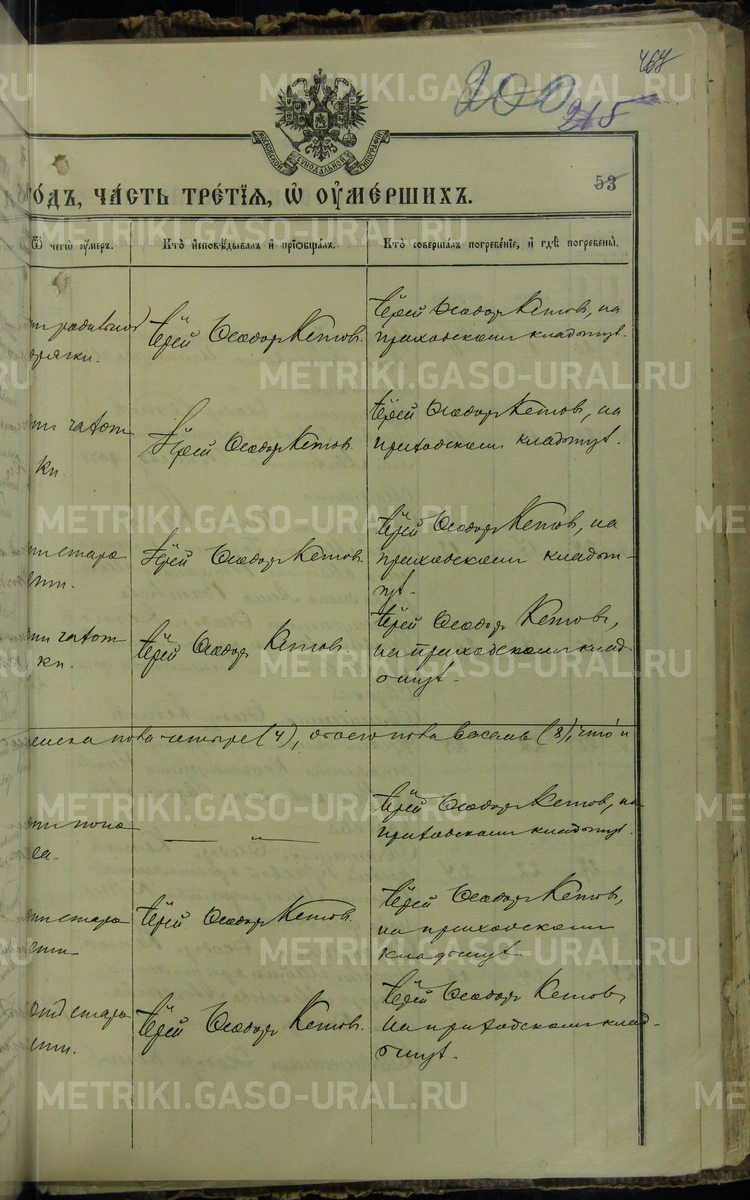 467
200
215
МОСКОВСКОЙ СѴНОДАЛЬНОЙ ТИПОГРАФІИ
53
ГОДЪ, ЧАСТЬ ТРЕТІЯ, Ѡ ОУМЕРШИХЪ.
Ѿ чегѡ оумеръ.
Кто исповѣдывалъ и пріобщалъ.
Кто совершалъ погребеніе, и гдѣ погребены.
родильной
горячки.
Іерей Ѳеодоръ Кетовъ.
Іерей Ѳеодоръ Кетовъ, на
приходскомъ кладбищѣ.
чахот
ки
Іерей Ѳеодоръ Кетовъ.
Іерей Ѳеодоръ Кетовъ, на
приходскомъ кладбищѣ.
старо
сти.
Іерей Ѳеодоръ Кетовъ.
Іерей Ѳеодоръ Кетовъ, на
приходскомъ кладби-
щѣ.
чахот
ки.
Іерей Ѳеодоръ Кетовъ.
Іерей Ѳеодоръ Кетовъ,
на приходскомъ клад-
бищѣ.
женска пола четыре (4), обоего пола восемь (8), что и
поно
са.
— " —
Іерей Ѳеодоръ Кетовъ, на
приходскомъ кладбищѣ.
старо
сти
Іерей Ѳеодоръ Кетовъ.
Іерей Ѳеодоръ Кетовъ,
на приходскомъ
кладбищѣ.
отъ старо
сти.
Іерей Ѳеодоръ Кетовъ.
Іерей Ѳеодоръ Кетовъ,
на приходскомъ клад-
бищѣ.
METRIKI.GASO-URAL.RU